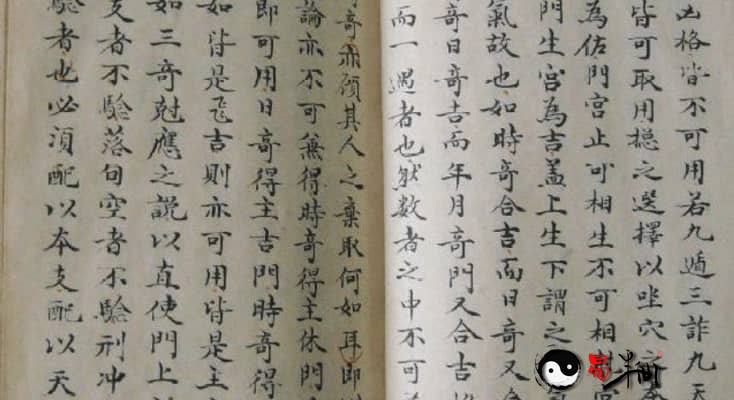 凶格皆不可用若九遁三詐九天
皆可取用揔之選擇以坐穴之
為佐門宮止可相生不可相
門生宮為吉蓋上生下謂之
氣故也如時奇合吉而日奇又
奇日奇吉而年月奇門又合吉
而一遇者也然数者之中不可
奇亦顧其人之棄取何如耳即
論亦不可無得時奇得主休門
即可用日奇得主吉門時奇得
如皆是飞吉則亦可用皆是主
如三奇尅應之說以直使門上
支者不驗落旬空者不驗刑冲
驗者也必須配以本支配以天